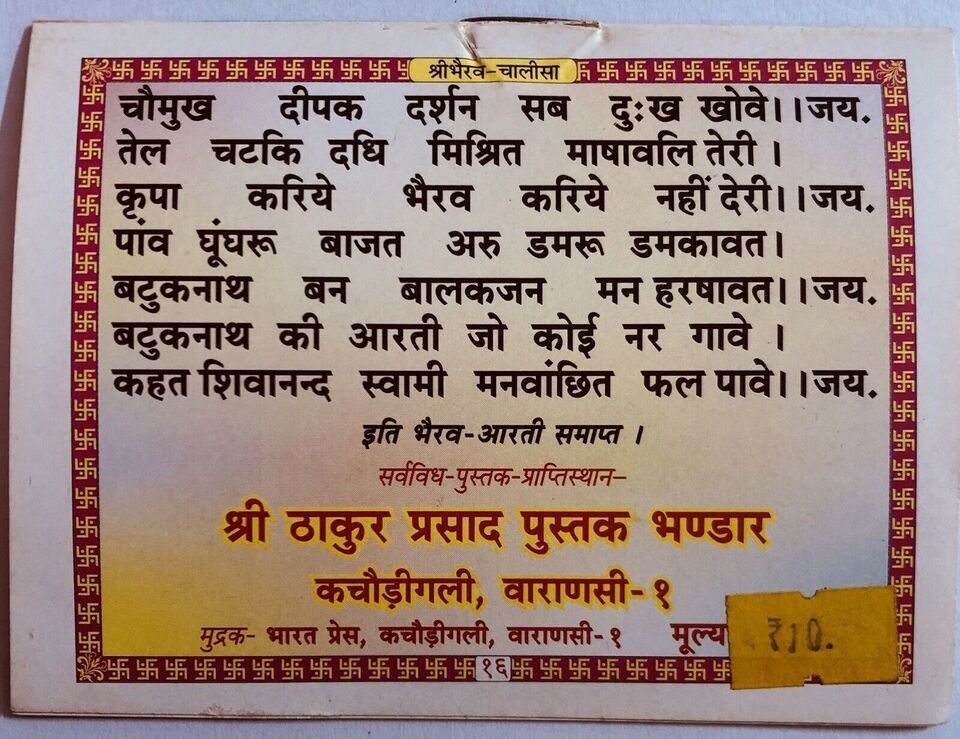 श्रीभैरव-चालीसा
चौमुख दीपक दर्शन सब दुःख खोवे।।जय.
तेल चटकि दधि मिश्रित माषावलि तेरी ।
कृपा करिये भैरव करिये नहीं देरी।।जय.
पांव घूंघरू बाजत अरु डमरू डमकावत।
बटुकनाथ बन बालकजन मन हरषावत।।जय.
बटुकनाथ की आरती जो कोई नर गावे ।
कहत शिवानन्द स्वामी मनवांछित फल पावे।।जय.
इति भैरव-आरती समाप्त ।
सर्वविध-पुस्तक-प्राप्तिस्थान–
श्री ठाकुर प्रसाद पुस्तक भण्डार
कचौड़ीगली, वाराणसी-१
मुद्रक- भारत प्रेस, कचौड़ीगली, वाराणसी-१ मूल्य ₹10.
१६